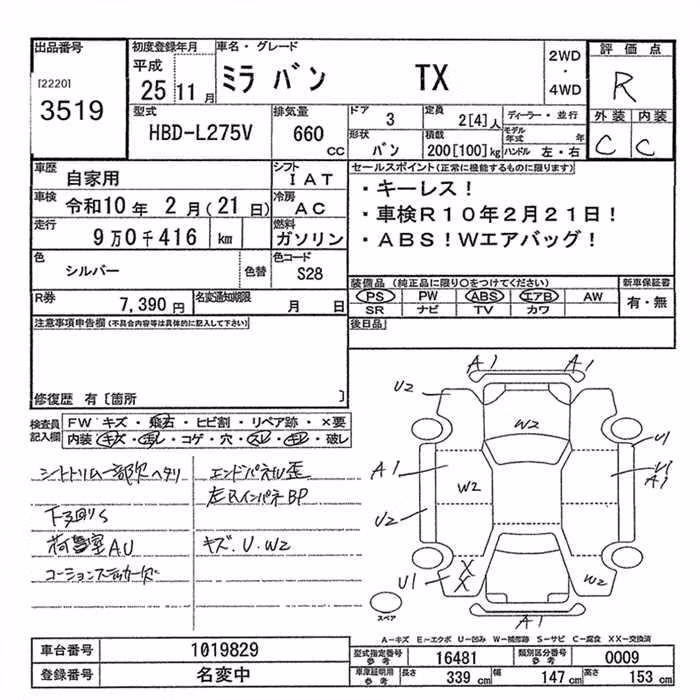 出品番号
[2220]
3519
初度登録年月
平成
25 11 月
車名・グレード
ミラ バン TX
2WD
・
4WD
評価点
R
外装 内装
C C
型式
HBD-L275V
排気量
660
CC
ドア
3
定員
2[4]人
ディーラー・並行
形状
バン
積載
200[100]kg
モデル年式 年
ハンドル 左・右
車歴
自家用
シフト
IAT
車検
令和10年 2月(21日)
冷房
AC
走行
9万0千416 km
燃料
ガソリン
色
シルバー
色替
色コード
S28
R券
7,390円
名変通知期限
月 日
セールスポイント(正常に機能するものに限ります)
・キーレス!
・車検R10年2月21日!
・ABS!Wエアバッグ!
装備品 (純正品に限り○をつけてください)
PS PW ABS エアB AW
SR ナビ TV カワ
新車保証書
有・無
後日品
注意事項申告欄(不具合内容等は具体的に記入して下さい)
修復歴 有〔箇所 〕
検査員
記入欄
FW キズ・飛石・ヒビ割・リペア跡・×要
内装 キズ・汚レ・コゲ・穴・スレ・キレ・破レ
シートトリム一部欠ヘタリ
下廻りS
荷畳室AU
コーションステッカー欠
エンドパネル歪
左RインパネBP
キズ.U.W2
A1 A1
U2
W2
U1
A1
U1
A1
W2
U2
X
X
U1
W2
A1
スペア
A−キズ E−エクボ U−凹み W−補修跡 S−サビ C−腐食 XX−交換済
車台番号
1019829
登録番号
名変中
型式指定番号
参考
16481
類別区分番号
参考
0009
車庫証明用
参考
長さ 339cm
幅 147cm
高さ 153cm